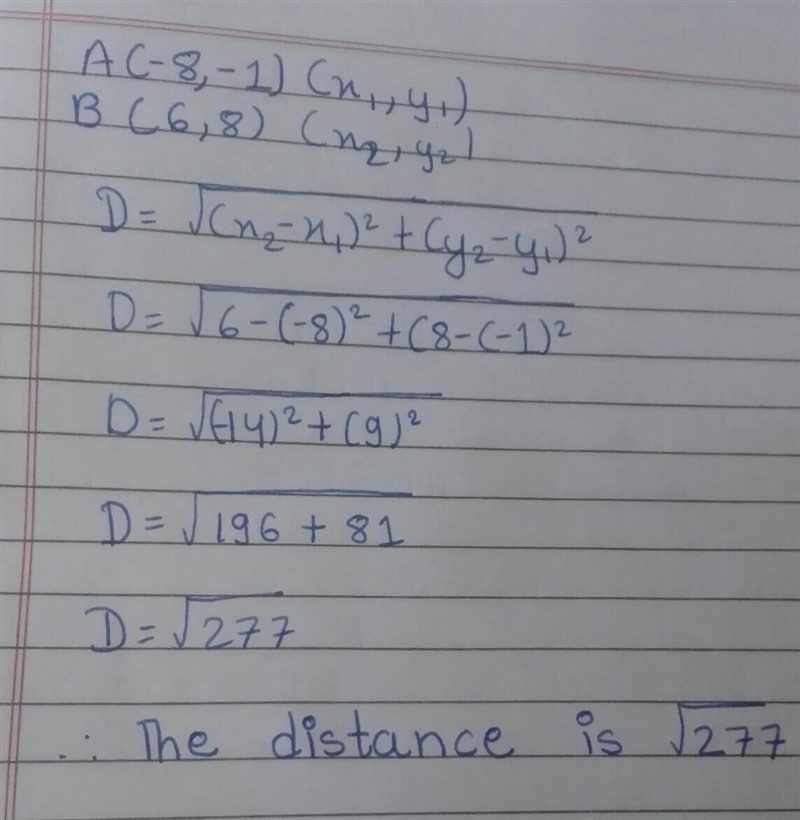 A(-8,-1) (x₁,y₁)
B (6,8) (x₂,y₂)
D = √(x₂-x₁)² + (y₂-y₁)²
D = √6-(-8)² + (8-(-1)²
D = √(-14)² + (9)²
D = √196 + 81
D = √277
∴ The distance is √277